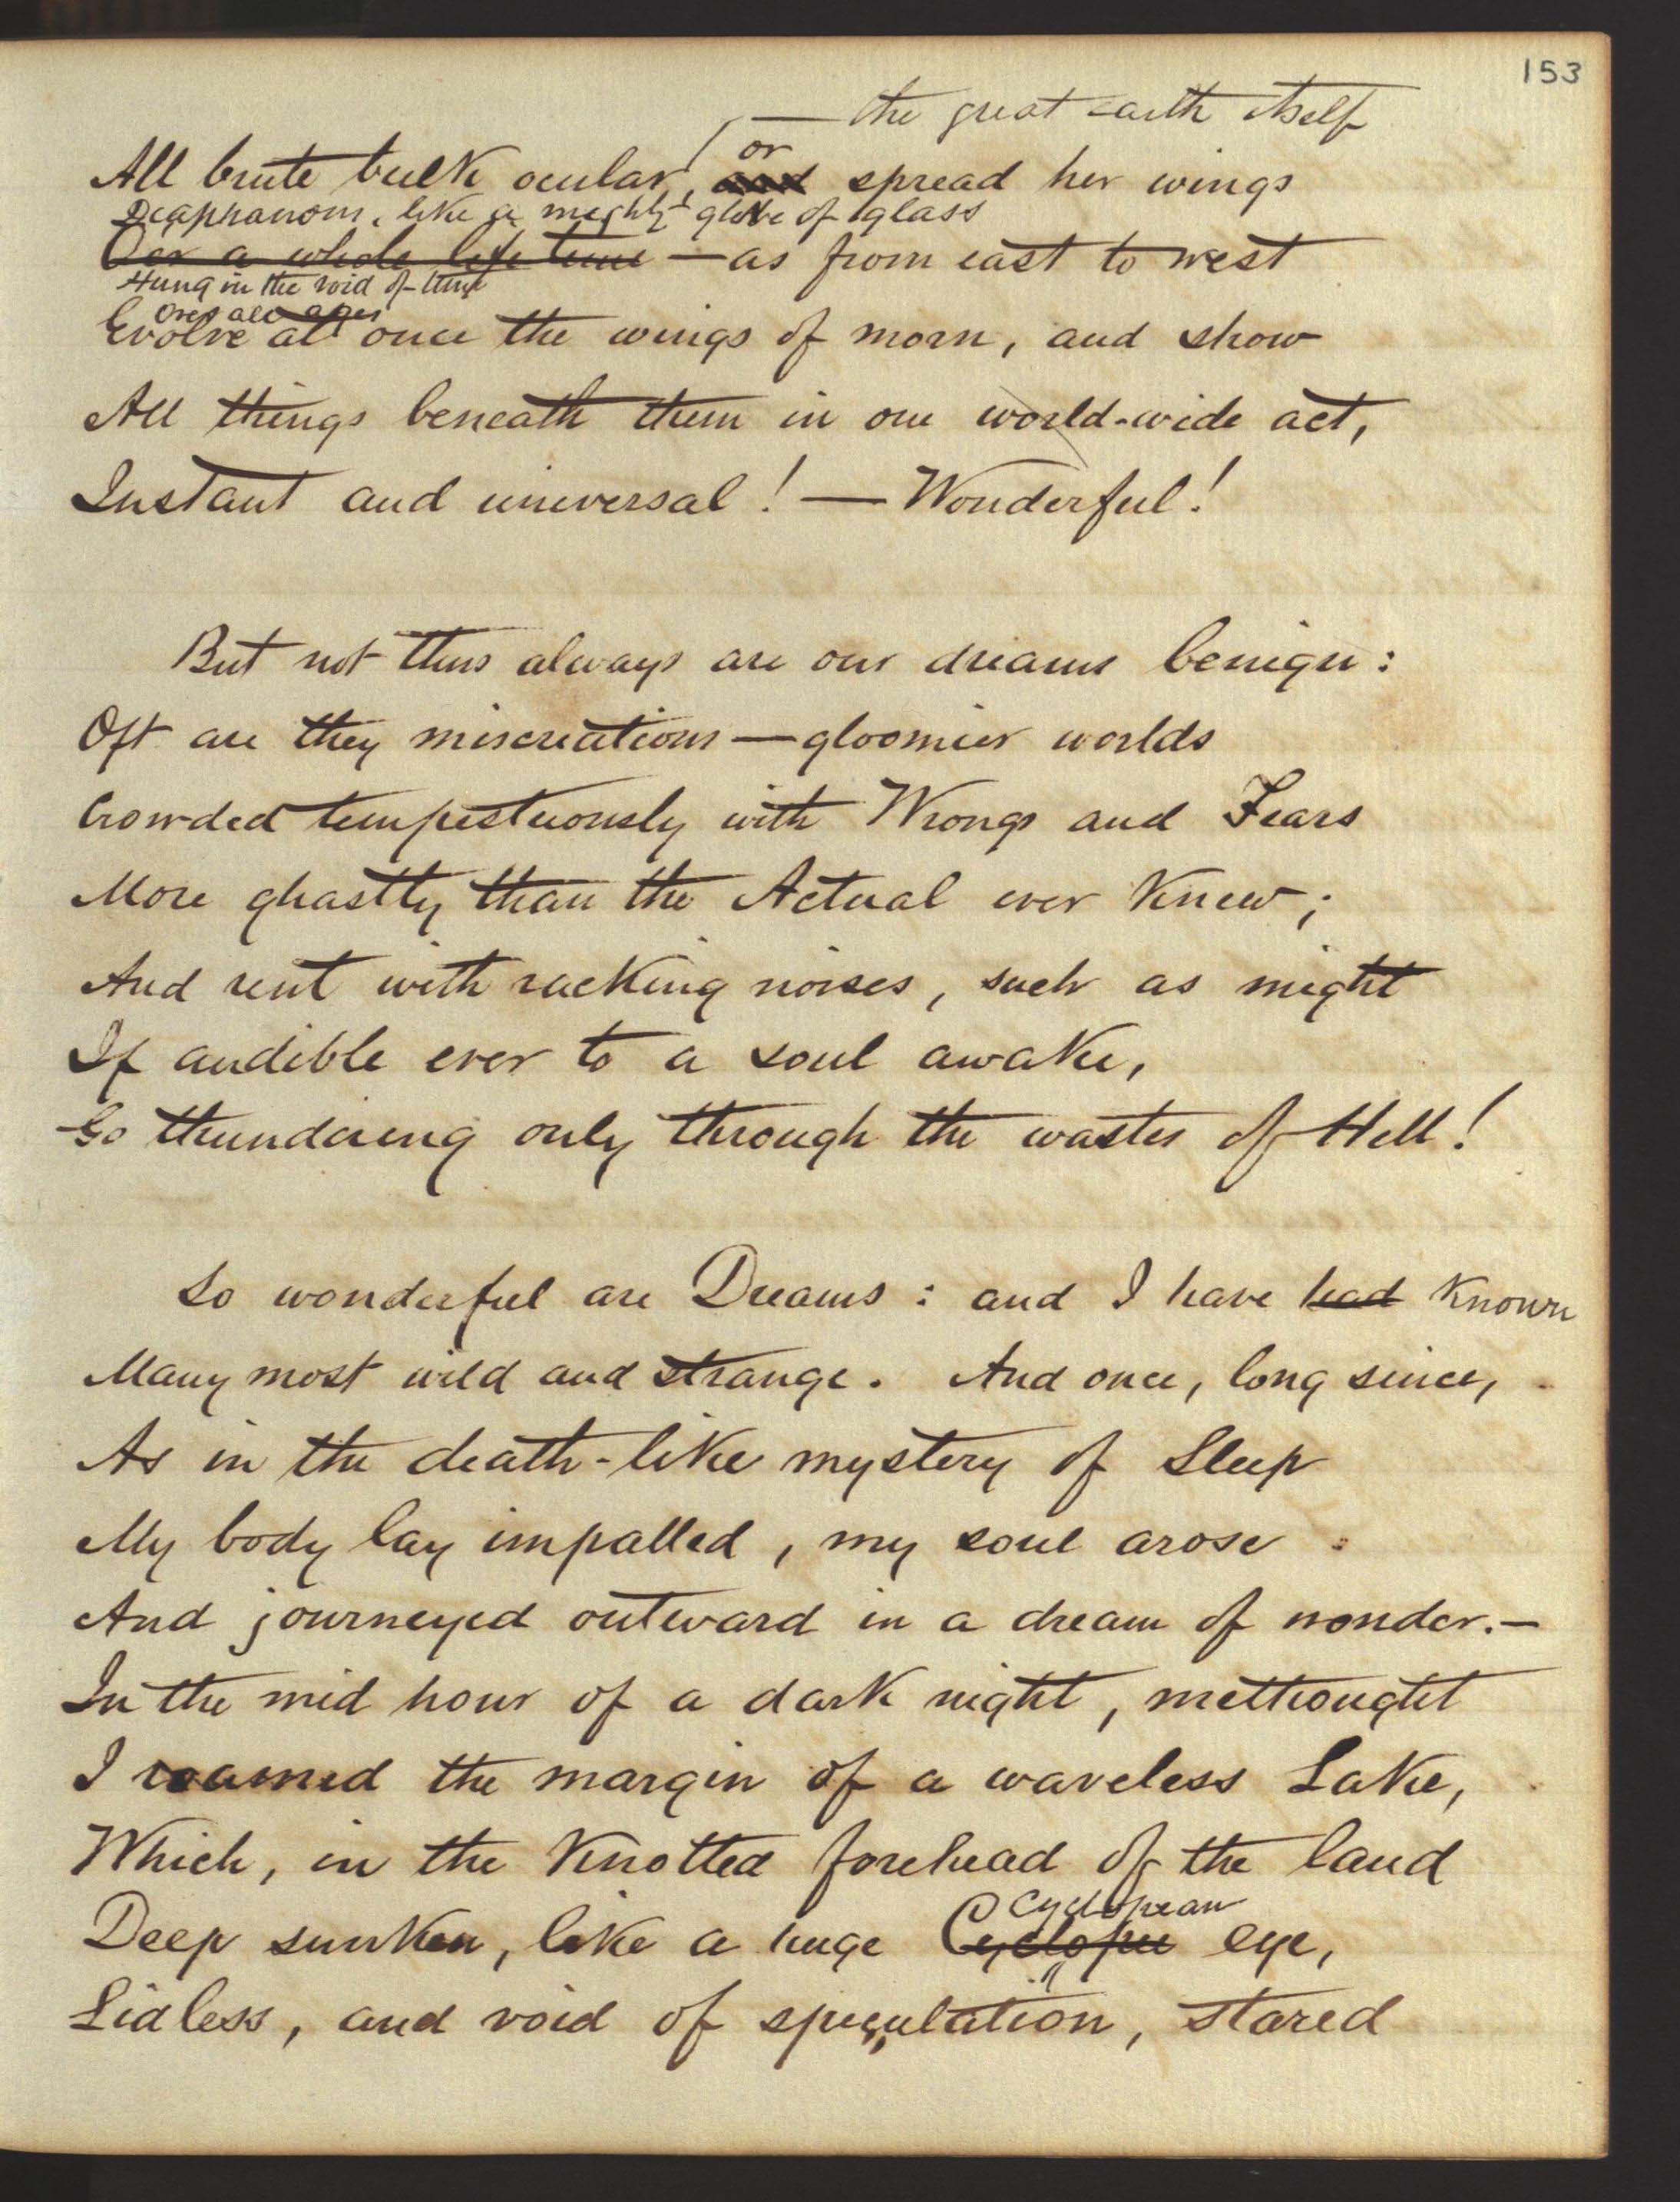 153
— the great earth itself
or
All brute bulk ocular, and spread her wings
Diaphanous, like a mighty globe of glass
Oer a whole life time — as from east to west
Hung in the void of time
Over all ages
Evolve at once the wings of morn, and show
All things beneath them in one world-wide act,
Instant and universal! — Wonderful!
But not thus always are our dreams benign:
Oft are they miscreations — gloomier worlds
Crowded tempestuously with Wrongs and Fears
More ghastly than the Actual ever knew;
And rent with racking noises, such as might
If audible ever to a soul awake,
Go thundering only through the wastes of Hell!
So wonderful are Dreams: and I have had known
Many most wild and strange. And once, long since,
As in the death-like mystery of Sleep
My body lay impalled, my soul arose
And journeyed outward in a dream of wonder.—
In the mid hour of a dark night, methought
I roamed the margin of a waveless Lake,
Which, in the knotted forehead of the land
Cyclopean
Deep sunken, like a huge eye,
Lidless, and void of speculation, stared